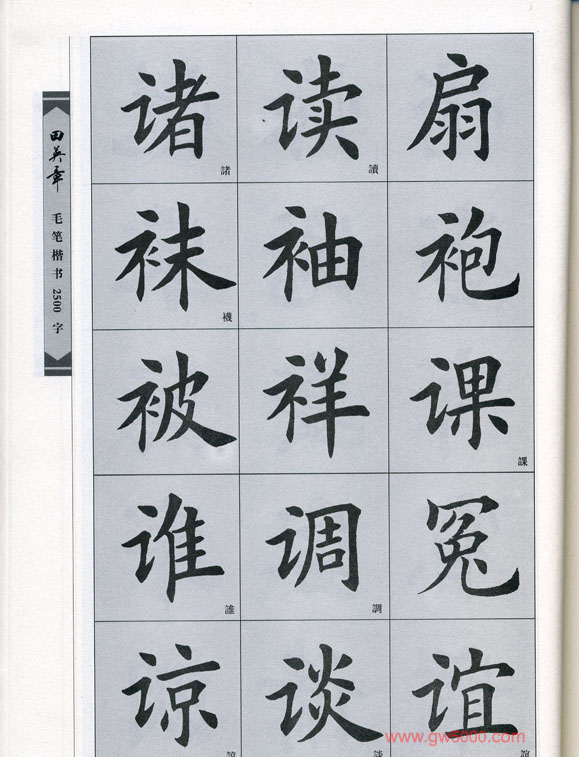 田英章
毛笔楷书2500字
诸 諸 读 讀 扇
袜 襪 袖 袍
被 祥 课 課
谁 誰 调 調 冤
谅 谈 谊